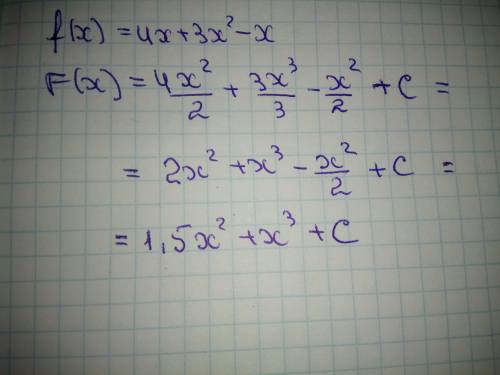 f(x) = 4x + 3x² - x
F(x) = 4x²/2 + 3x³/3 - x²/2 + C =
= 2x² + x³ - x²/2 + C =
= 1,5x² + x³ + C